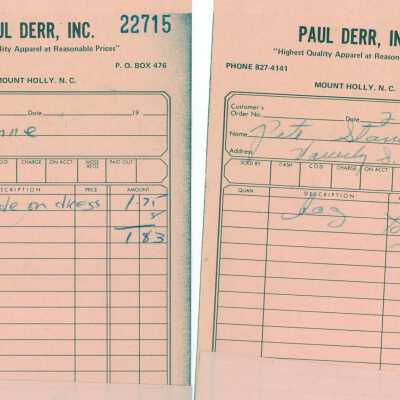 UL DERR, INC. 22715
lity Apparel at Reasonable Prices"
P. O. BOX 476
MOUNT HOLLY, N. C.
Date 19
nne
C.O.D. CHARGE ON ACCT MDSE RETD PAID OUT
ESCRIPTION PRICE AMOUNT
on dress 1.75
8
1 83
PAUL DERR, IN
"Highest Quality Apparel at Reasona
PHONE 827-4141
MOUNT HOLLY, N. C.
Customer's
Order No. Date 2
Name Pete
Address
SOLD BY CASH C.O.D. CHARGE ON ACCT
QUAN. DESCRIPTION